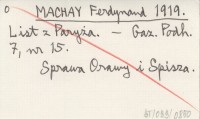 o MACHAY Ferdynand 1919.
List z Paryża. — Gaz. Podh.
7, nr 15.
Sprawa Orawy i Spisza.